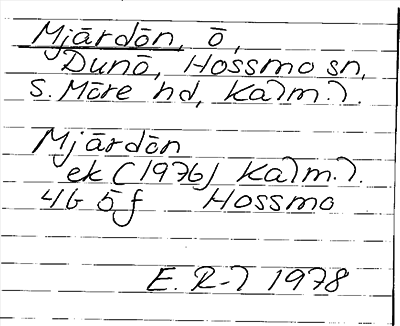 Mjärdön, ö,
Dunö, Hossmo sn,
S. Möre hd, Kalm. l.
Mjärdön
ek (1976) Kalm. l.
4G 5 f Hossmo
E. R-l 1978